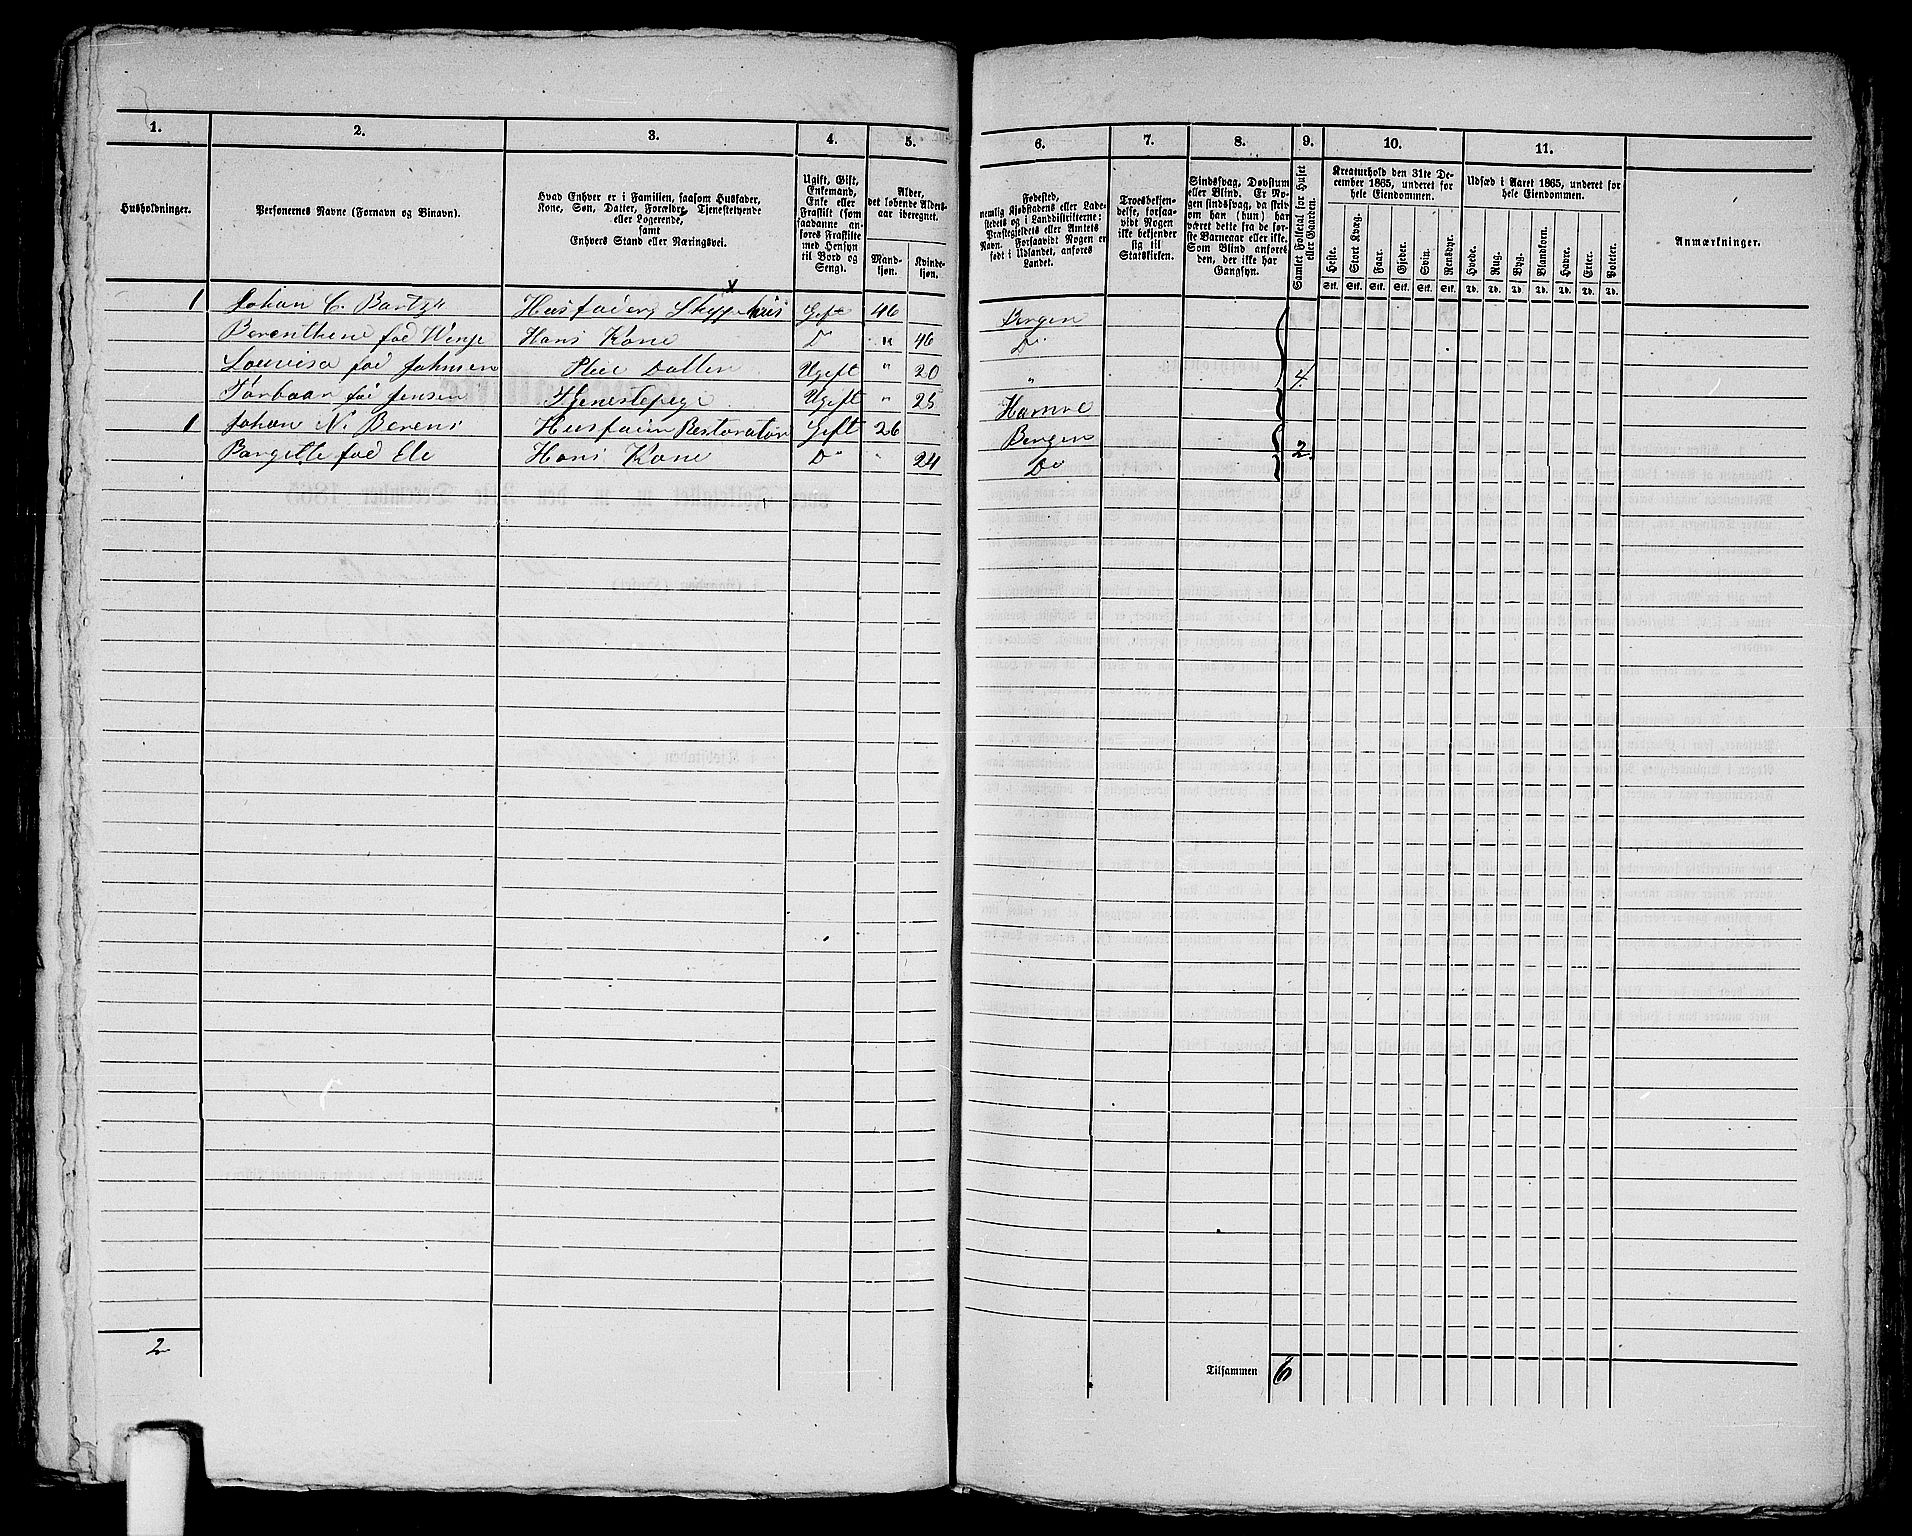 1. 2. 3. 4. 5. 6. 7. 8. 9. 10. 11.
Husholdninger.
Personernes Navne (Fornavn og Binavn).
Hvad Enhver er i Familien, saasom Husfader,
Kone, Søn, Datter, Forældre, Tjenestetyende
eller Logerende,
samt
Enhvers Stand eller Næringsvei.
Ugift, Gift,
Enkemand,
Enke eller
Fraskilt (som
saadanne an-
føres Fraskilte
med Hensyn
til Bord og
Seng).
Alder,
det løbende Alders-
aar iberegnet.
Mand-
kjøn.
Kvinde-
kjøn.
Fødested,
nemlig Kjøbstadens eller Lade-
stedets og i Landdistrikterne:
Præstegjeldets eller Amtets
Navn. Forsaavidt Nogen er
født i Udlandet, anføres
Landet.
Troesbekjen-
delse, forsaa-
vidt Nogen
ikke bekjender
sig til
Statskirken.
Sindssvag, Døvstum
eller Blind. Er No-
gen sindssvag, da skriv
om han (hun) har
været dette fra de før-
ste Barneaar eller ikke.
Som Blind anføres
den, der ikke har
Gangsyn.
Samlet Folketal for Huset
eller Gaarden.
Kreaturhold den 31te De-
cember 1865, underet for
hele Eiendommen.
Heste. Stort Kvæg. Faar. Gjeder. Svin. Rensdyr.
Stk. Stk. Stk. Stk. Stk. Stk.
Udsæd i Aaret 1865, underet for
hele Eiendommen.
Hvede. Rug. Byg. Blandkorn. Havre. Erter. Poteter.
Td. Td. Td. Td. Td. Td. Td.
Anmærkninger.
1 Johan C. Husfader Gift 46 Bergen
Berenthine fød Hans Kone D " 46 D°
Lovvisa fød Johnsen Pleie Datter Ugift " 20 " 4
fød Jensen Tjenestepige Ugift " 25
1 Johan N. Berens Husfader Restoratør Gift 26 Bergen
fød Ele Hans Kone D° " 24 D° 2
2
Tilsammen 6